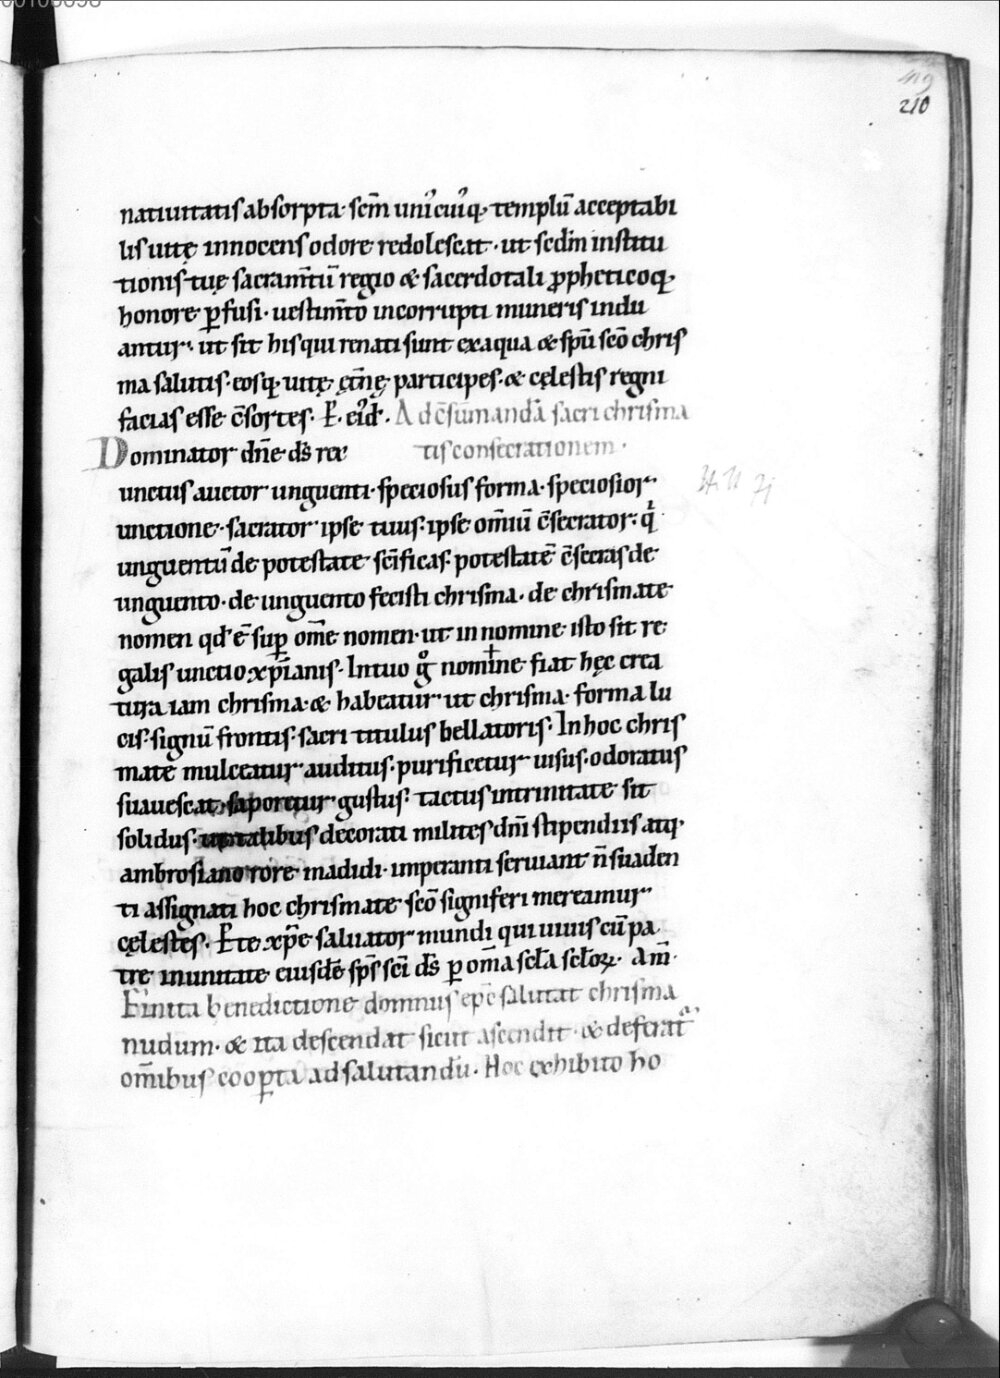 419
210
natiuitatis absorpta · scm̄ uni᷒cui᷒q; templū acceptabi
lis uitę innocens odore redolescat · ut scdm̄ institu
tionis tuę sacram̄tū regio & sacerdotali ꝓpheticoq;
honore ꝑfusi · uestim̄to incorrupti muneris indu
antur · ut sit his qui renati sunt ex aqua & spū scō chris
ma salutis · eosq; uitę ęt̄nę participes · & cęlestis regni
facias esse c̄sortes · P̄ · ei᷒d · Ad c̄sūmandā sacri chrisma
Dominator dn̄e ds̄ rex tis consecrationem ·
unctus auctor unguenti · speciosus forma · speciosior
unctione · sacrator ipse tuus · ipse om̄iū c̄secrator · qͥ
unguentū de potestate sc̄ificas · potestatē c̄secras de
unguento · de unguento fecisti chrisma · de chrismate
nomen qd' ē suꝑ om̄e nomen · ut in nomine isto sit re
galis unctio xp̄ianis · In tuo gͦ nomine fiat hęc crea
tura iam chrisma · & habeatur ut chrisma · forma lu
cis · signū frontis · sacri titulus bellatoris · In hoc chris
mate mulceatur auditus · purificetur uisus · odoratus
suauescat · saporetur gustus · tactus in trinitate sit
solidus · decorati milites dn̄i stipendiis atq;
ambrosiano rore madidi · imperanti seruiant n̄ suaden
ti assignati hoc chrismate scō signiferi mereamur
cęlestes · P̄ te xp̄e saluator mundi qui uiuis cū pa
tre in unitate eiusdē sp̄s sc̄i ds̄ ꝑ om̄a scl̄a scl̄oꝝ · Am̄ ·
Finita benedictione domnus ep̄c salutat chrisma
nudum · & ita descendat sicut ascendit · & deferat᷒
om̄ibus cooꝑta ad salutandū · Hoc exhibito ho